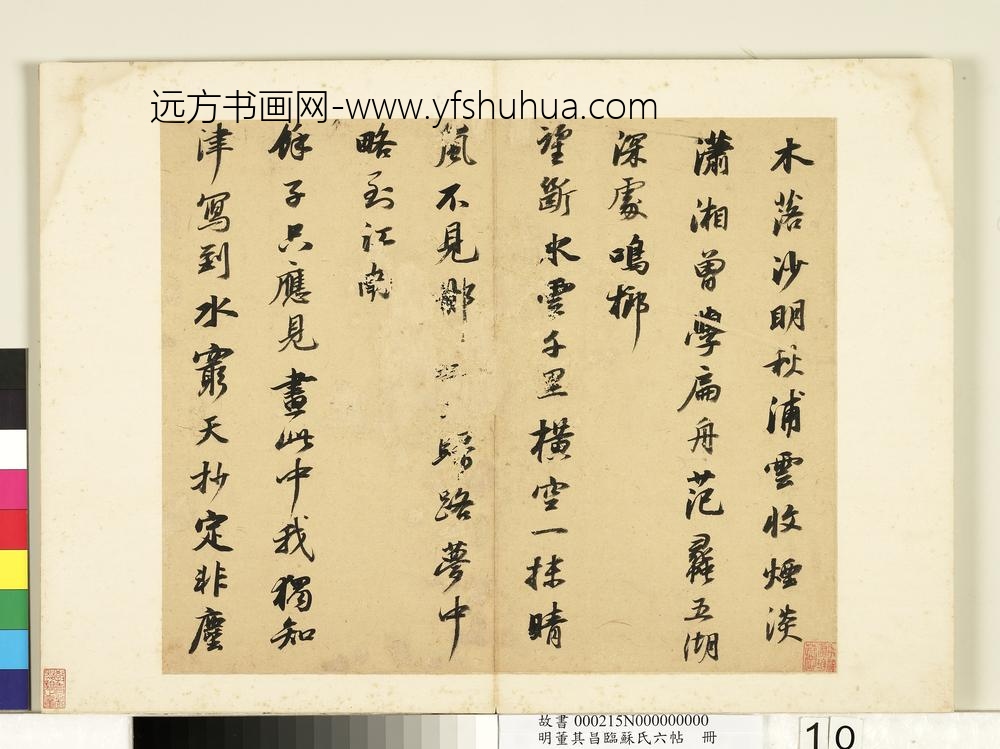 远方书画网-www.yfshuhua.com
木落沙明秋浦雲收煙淡
瀟湘曾學扁舟范蠡五湖
深處鳴榔
望斷水雲千里橫空一抹晴
嵐不見邯歸路夢中
略到江南
餘子只應見畫此中我獨知
津寫到水窮天杪定非塵
故書 000215N000000000
明董其昌臨蘇氏六帖 冊
10